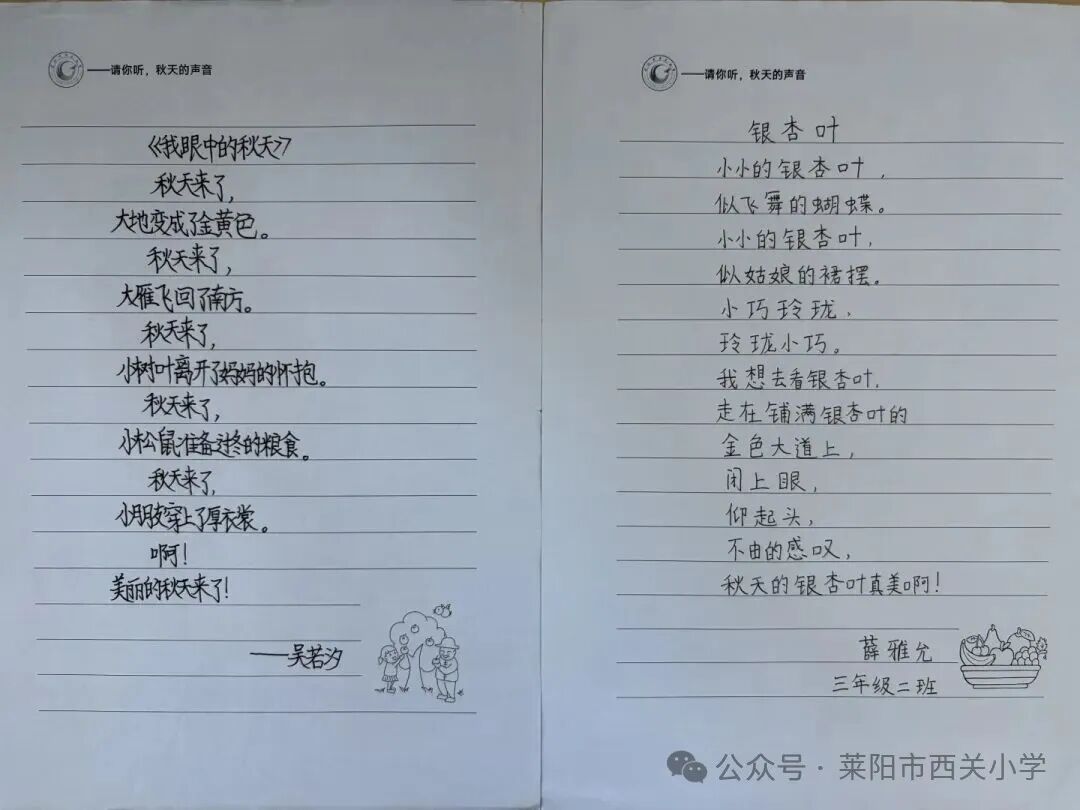 ——请你听，秋天的声音
《我眼中的秋天》
秋天来了，
大地变成了金黄色。
秋天来了，
大雁飞回了南方。
秋天来了，
小树叶离开了妈妈的怀抱。
秋天来了，
小松鼠准备过冬的粮食。
秋天来了，
小朋友穿上了厚衣裳。
啊！
美丽的秋天来了！
——吴若汐
——请你听，秋天的声音
银杏叶
小小的银杏叶，
似飞舞的蝴蝶。
小小的银杏叶，
似姑娘的裙摆。
小巧玲珑，
玲珑小巧。
我想去看银杏叶，
走在铺满银杏叶的
金色大道上，
闭上眼，
仰起头，
不由的感叹，
秋天的银杏叶真美啊！
薛雅允
三年级二班
公众号·莱阳市西关小学